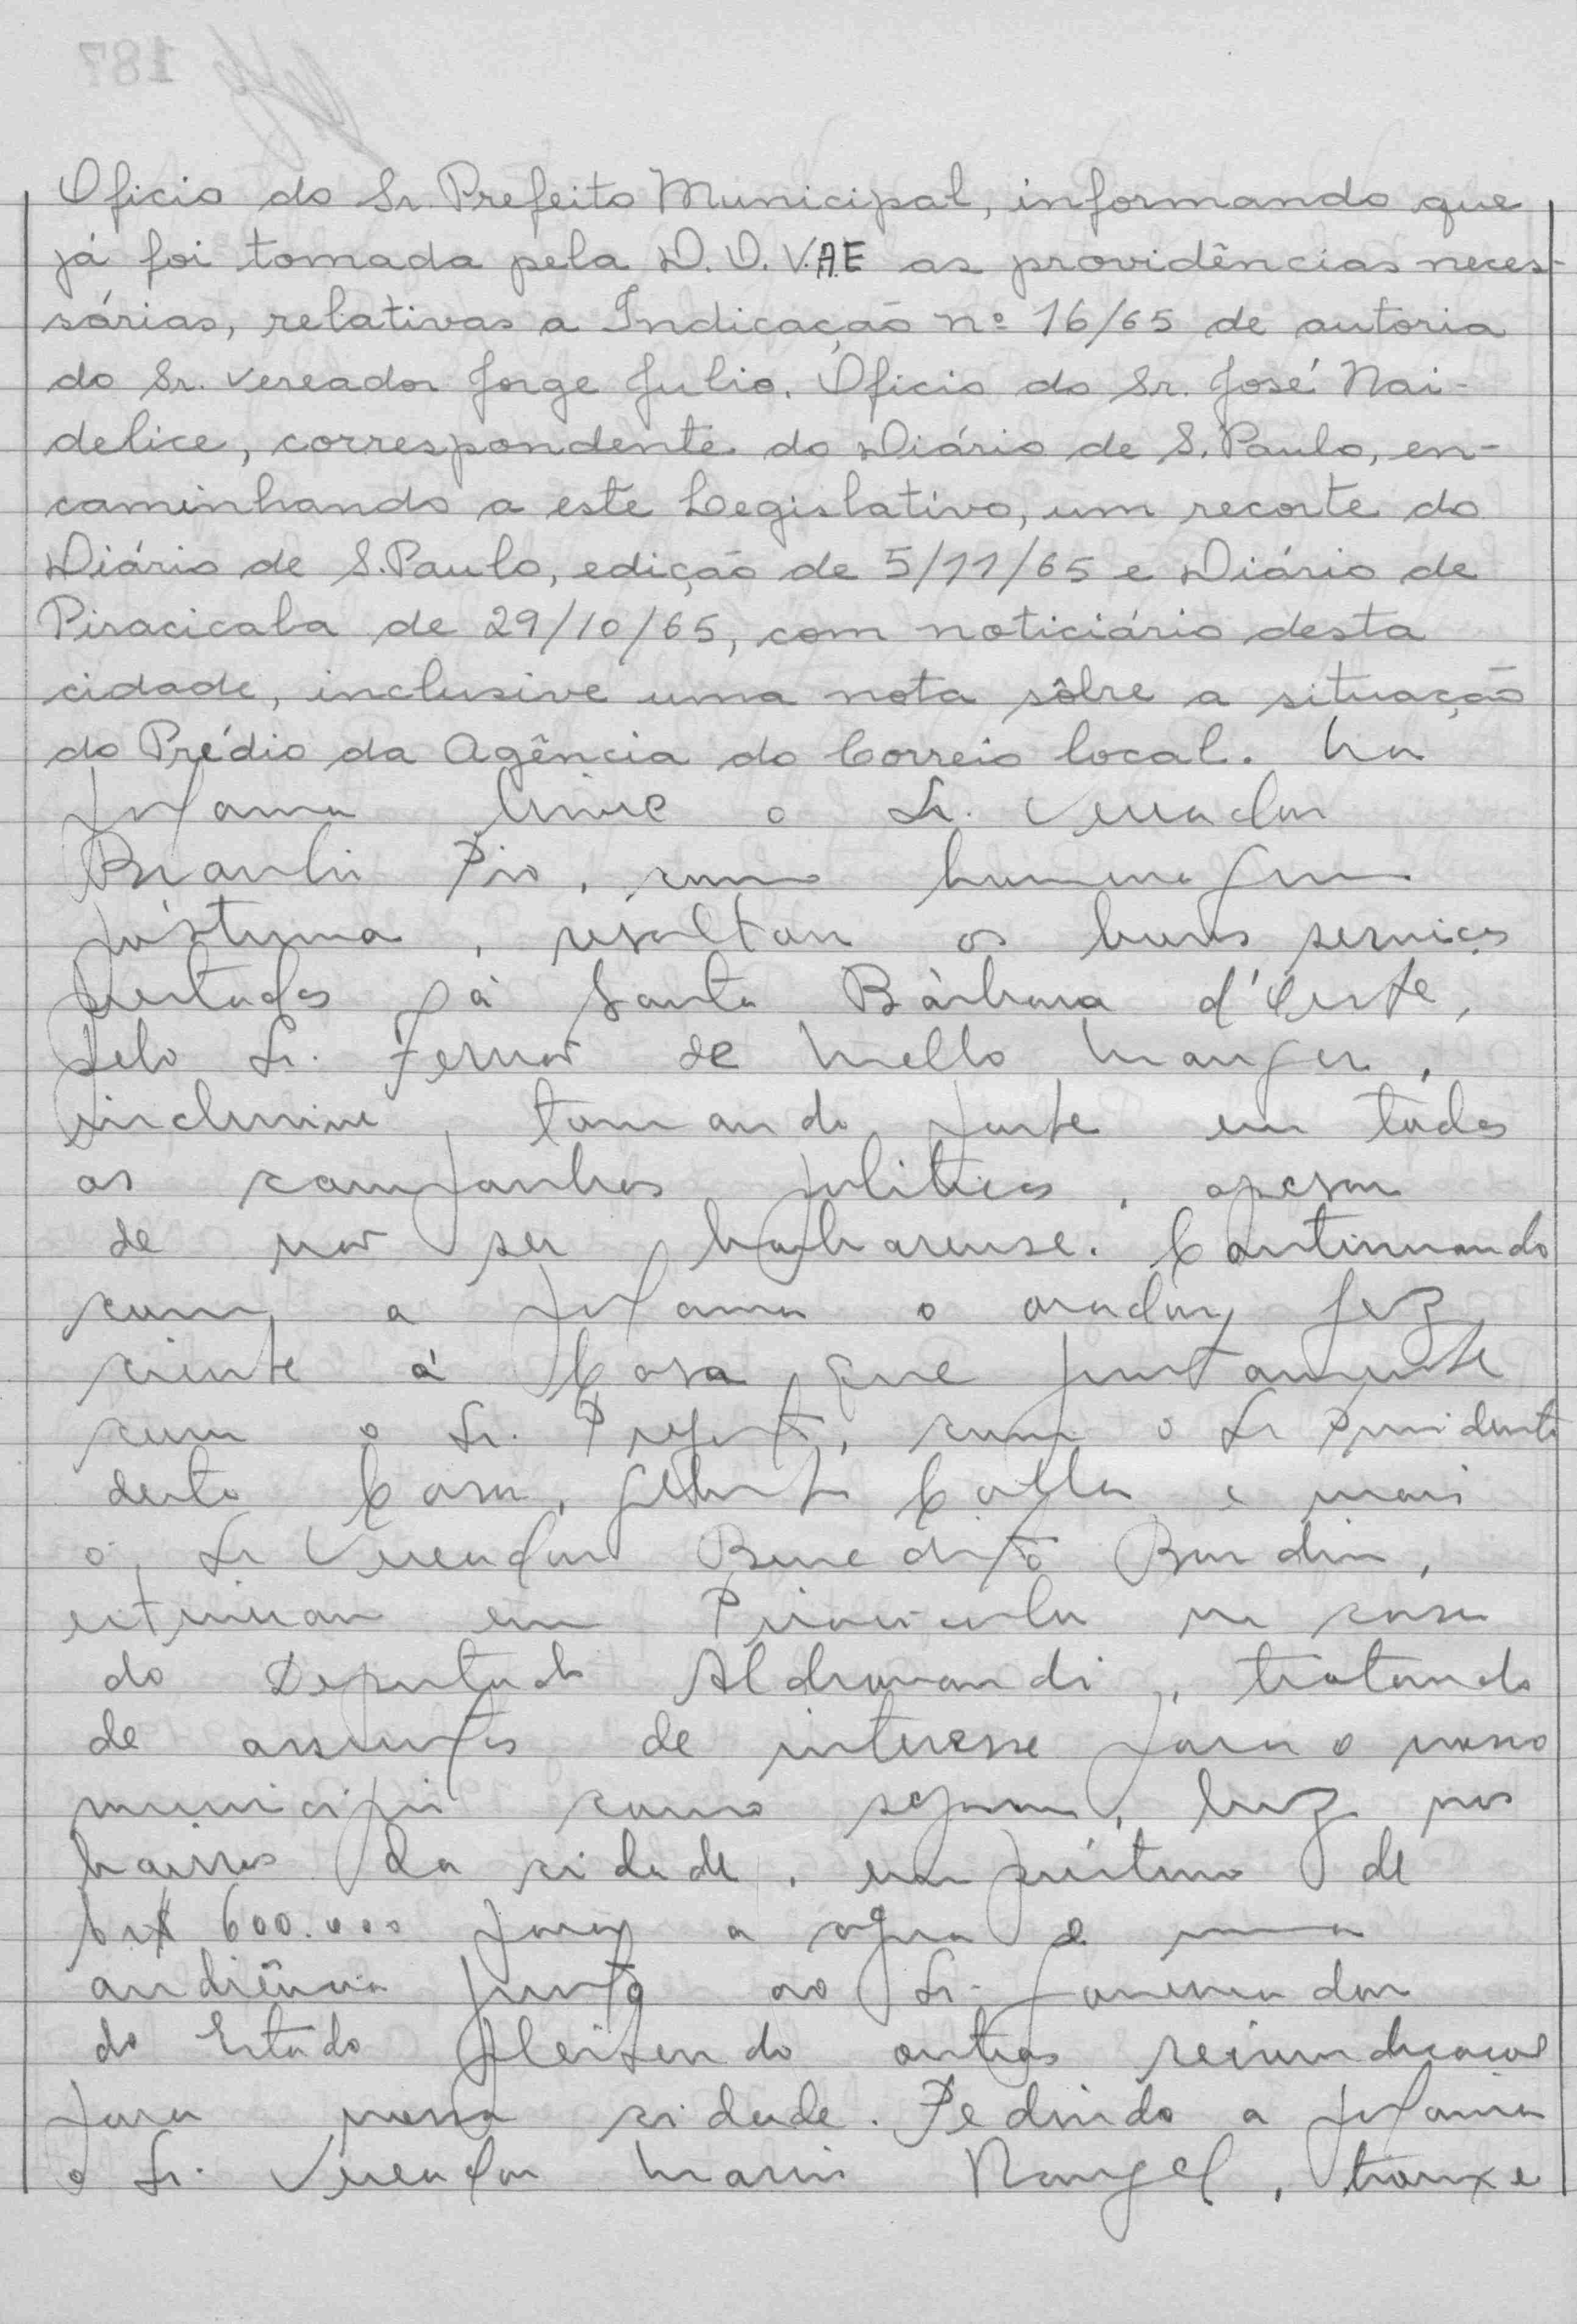 Oficio do Sr. Prefeito Municipal, informando que
já foi tomada pela D.O.V.A.E as providências neces-
sárias, relativas a Indicação nº 16/65 de autoria
do Sr. Vereador Jorge Julio. Oficio do Sr. José Nai-
delice, correspondente do Diário de S. Paulo, en-
caminhando a este Legislativo, um recorte do
Diário de S. Paulo, edição de 5/11/65 e Diário de
Piracicaba de 29/10/65, com noticiário desta
cidade, inclusive uma nota sôbre a situação
do Prédio da Agência do Correio local. Na
palavra livre o Sr. Vereador
Braulio Pio, como homenagem
póstuma, resaltou os bons serviços
prestados à Santa Bárbara d'Oeste,
pelo Sr. de Mello
inclusive tomando parte em todas
as campanhas politicas, apesar
de não ser barbarense. Continuando
com a palavra o orador, fez
ciente á Casa que juntamente
com o Sr. Prefeito, com o Sr Presidente
desta Casa, e mais
o Sr Vereador Benedito
estiveram em Piracicaba na casa
do Deputado Aldrovandi, tratando
de assuntos de interesse para o nosso
municipio como sejam, luz nos
bairros da cidade, empréstimo de
Cr$ 600.000 para a agua e uma
audiência junto ao Sr. Governador
do Estado pleiteando outras reivindicações
para nossa cidade. Pedindo a palavra
o Sr. Vereador Mario Rangel, trouxe